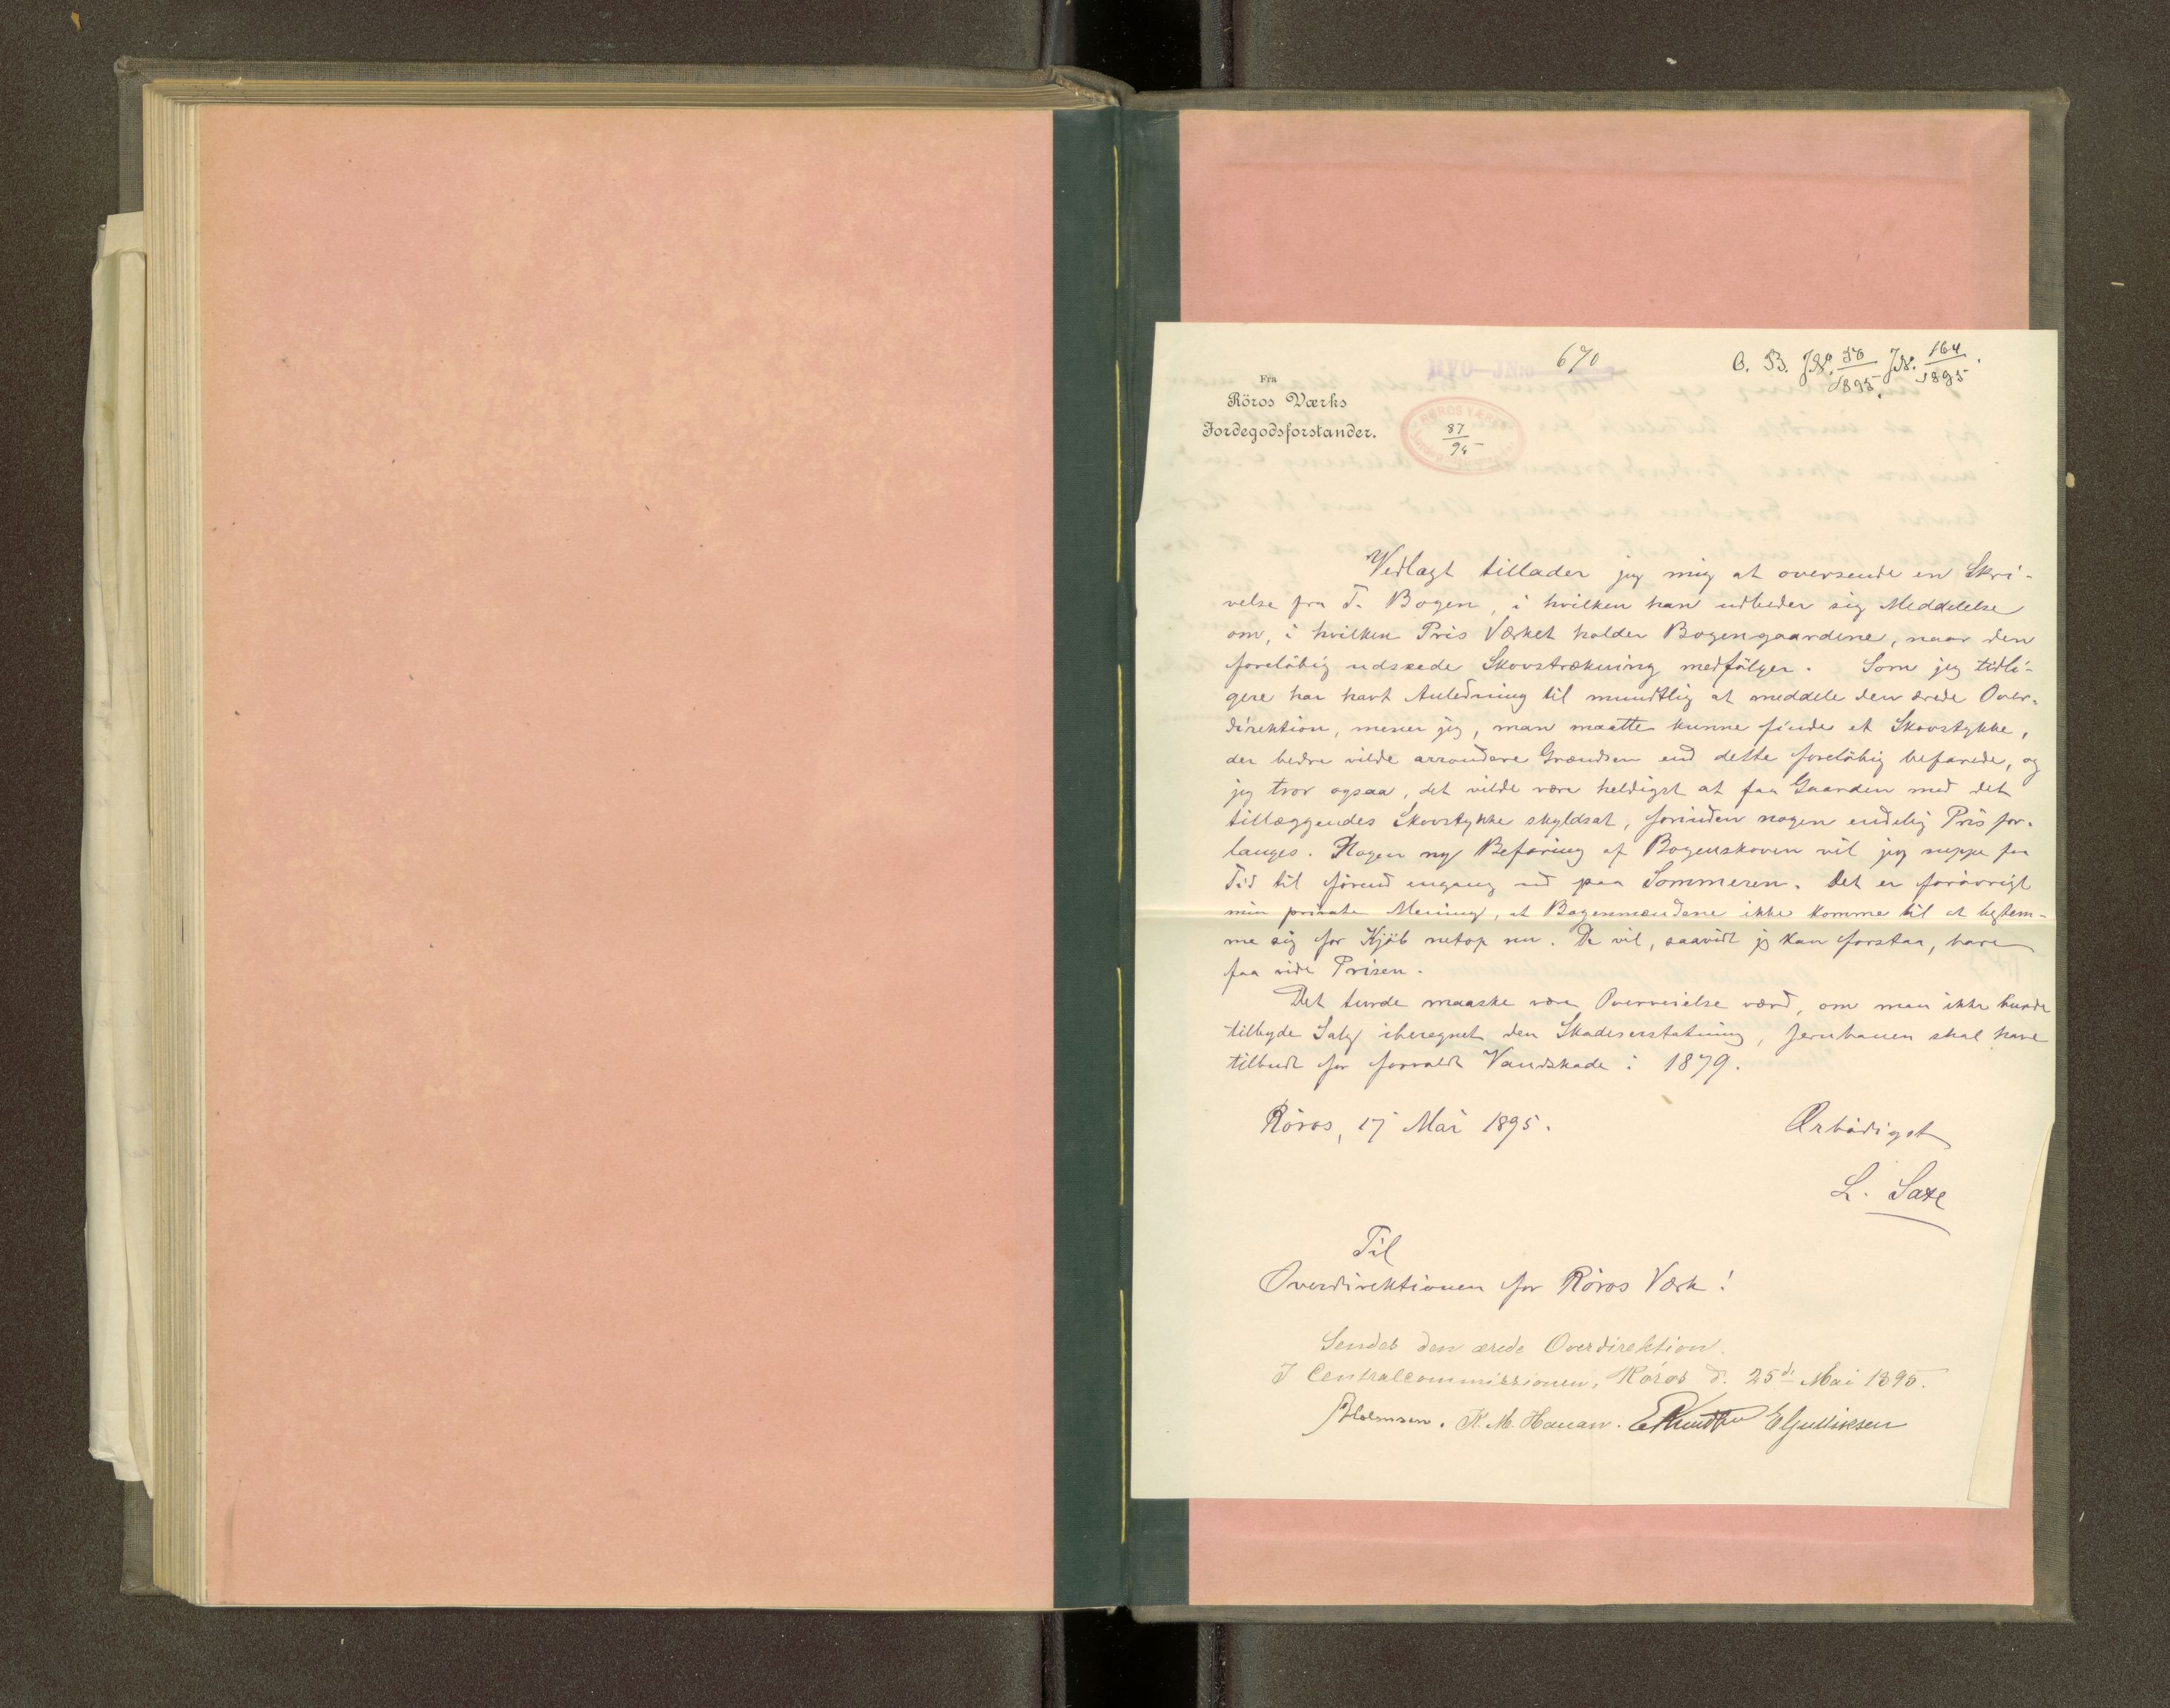 670
C. B. JN. 50/1895. JN. 164/1895.
RVO—JN:o
Fra
Röros Værks
Jordegodsforstander.
RØROS VÆRK
87/95
Vedlagt tillader jeg mig at oversende en Skri-
velse fra T. Bogen, i hvilken han udbeder sig Meddelelse
om, i hvilken Pris Værket holder Bogengaardene, naar den
foreløbig udseede Skovstrækning medfølger. Som jeg tidli-
gere har havt Anledning til mundtlig at meddele den ærede Over-
direktion, mener jeg, man maatte kunne finde et Skovstykke,
der bedre vilde arrondere Grændsen end dette foreløbig befarede, og
jeg tror ogsaa, det vilde være heldigst at faa Gaarden med det
tillæggendes Skovstykke skyldsat, forinden nogen endelig Pris for-
langes. Nogen ny Befaring af Bogenskoven vil jeg neppe faa
Tid til førend engang ud paa Sommeren. Det er forøvrigt
min private Mening, at Bogenmændene ikke komme til at bestem-
me sig for Kjøb netop nu. De vil, saavidt jeg kan forstaa, bare
faa vide Prisen.
Det turde maaske være Overveielse værd, om man ikke burde
tilbyde Salg iberegnet den Skadeserstatning, Jernbanen skal have
tilbudt for forvoldt Vandskade i 1879.
Röros, 17 Mai 1895.
Ærbødigst
L. Saxe
Til
Overdirektionen for Röros Værk!
Sendes den ærede Overdirektion.
I Centralcommissionen, Röros d. 25de Mai 1895.
Holmsen. K. M. Hauan. E Knudsen E Gulliksen